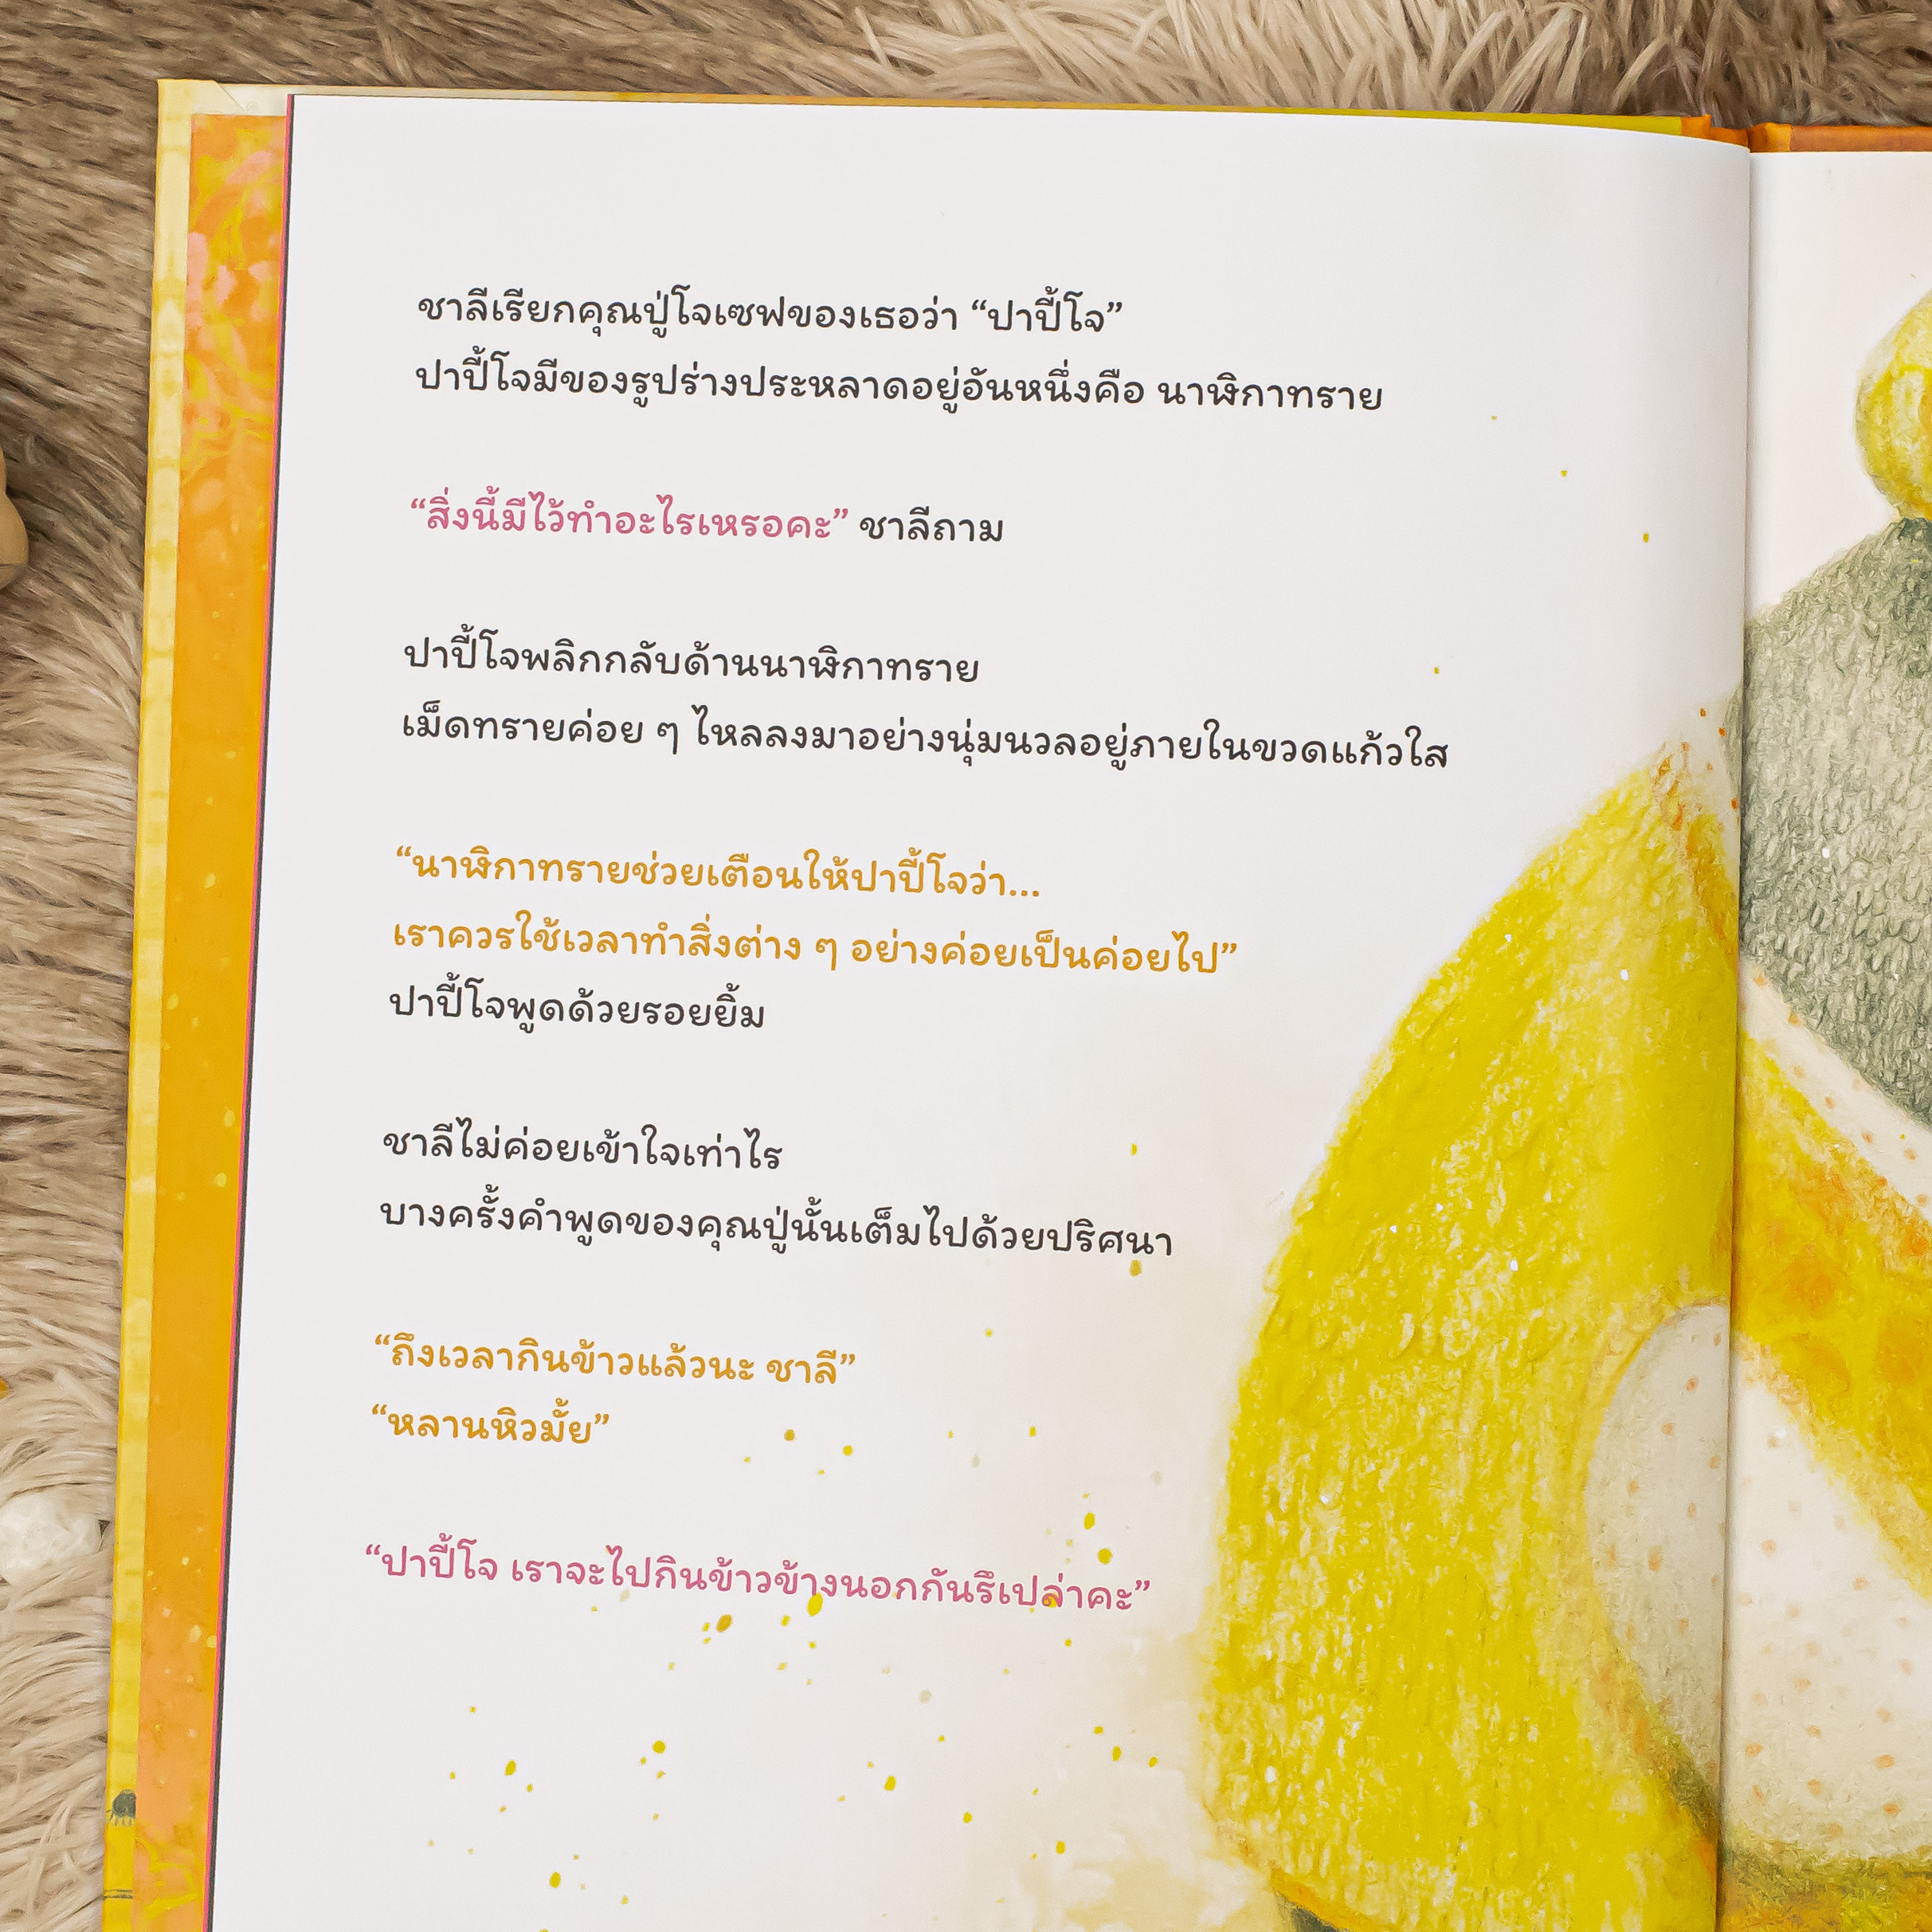 ชาลีเรียกคุณปู่โจเซฟของเธอว่า “ปาปี้โจ”
ปาปี้โจมีของรูปร่างประหลาดอยู่อันหนึ่งคือ นาฬิกาทราย
“สิ่งนี้มีไว้ทำอะไรเหรอคะ” ชาลีถาม
ปาปี้โจพลิกกลับด้านนาฬิกาทราย
เม็ดทรายค่อย ๆ ไหลลงมาอย่างนุ่มนวลอยู่ภายในขวดแก้วใส
“นาฬิกาทรายช่วยเตือนให้ปาปี้โจว่า...
เราควรใช้เวลาทำสิ่งต่าง ๆ อย่างค่อยเป็นค่อยไป”
ปาปี้โจพูดด้วยรอยยิ้ม
ชาลีไม่ค่อยเข้าใจเท่าไร
บางครั้งคำพูดของคุณปู่นั้นเต็มไปด้วยปริศนา
“ถึงเวลากินข้าวแล้วนะ ชาลี”
“หลานหิวมั้ย”
“ปาปี้โจ เราจะไปกินข้าวข้างนอกกันรึเปล่าคะ”